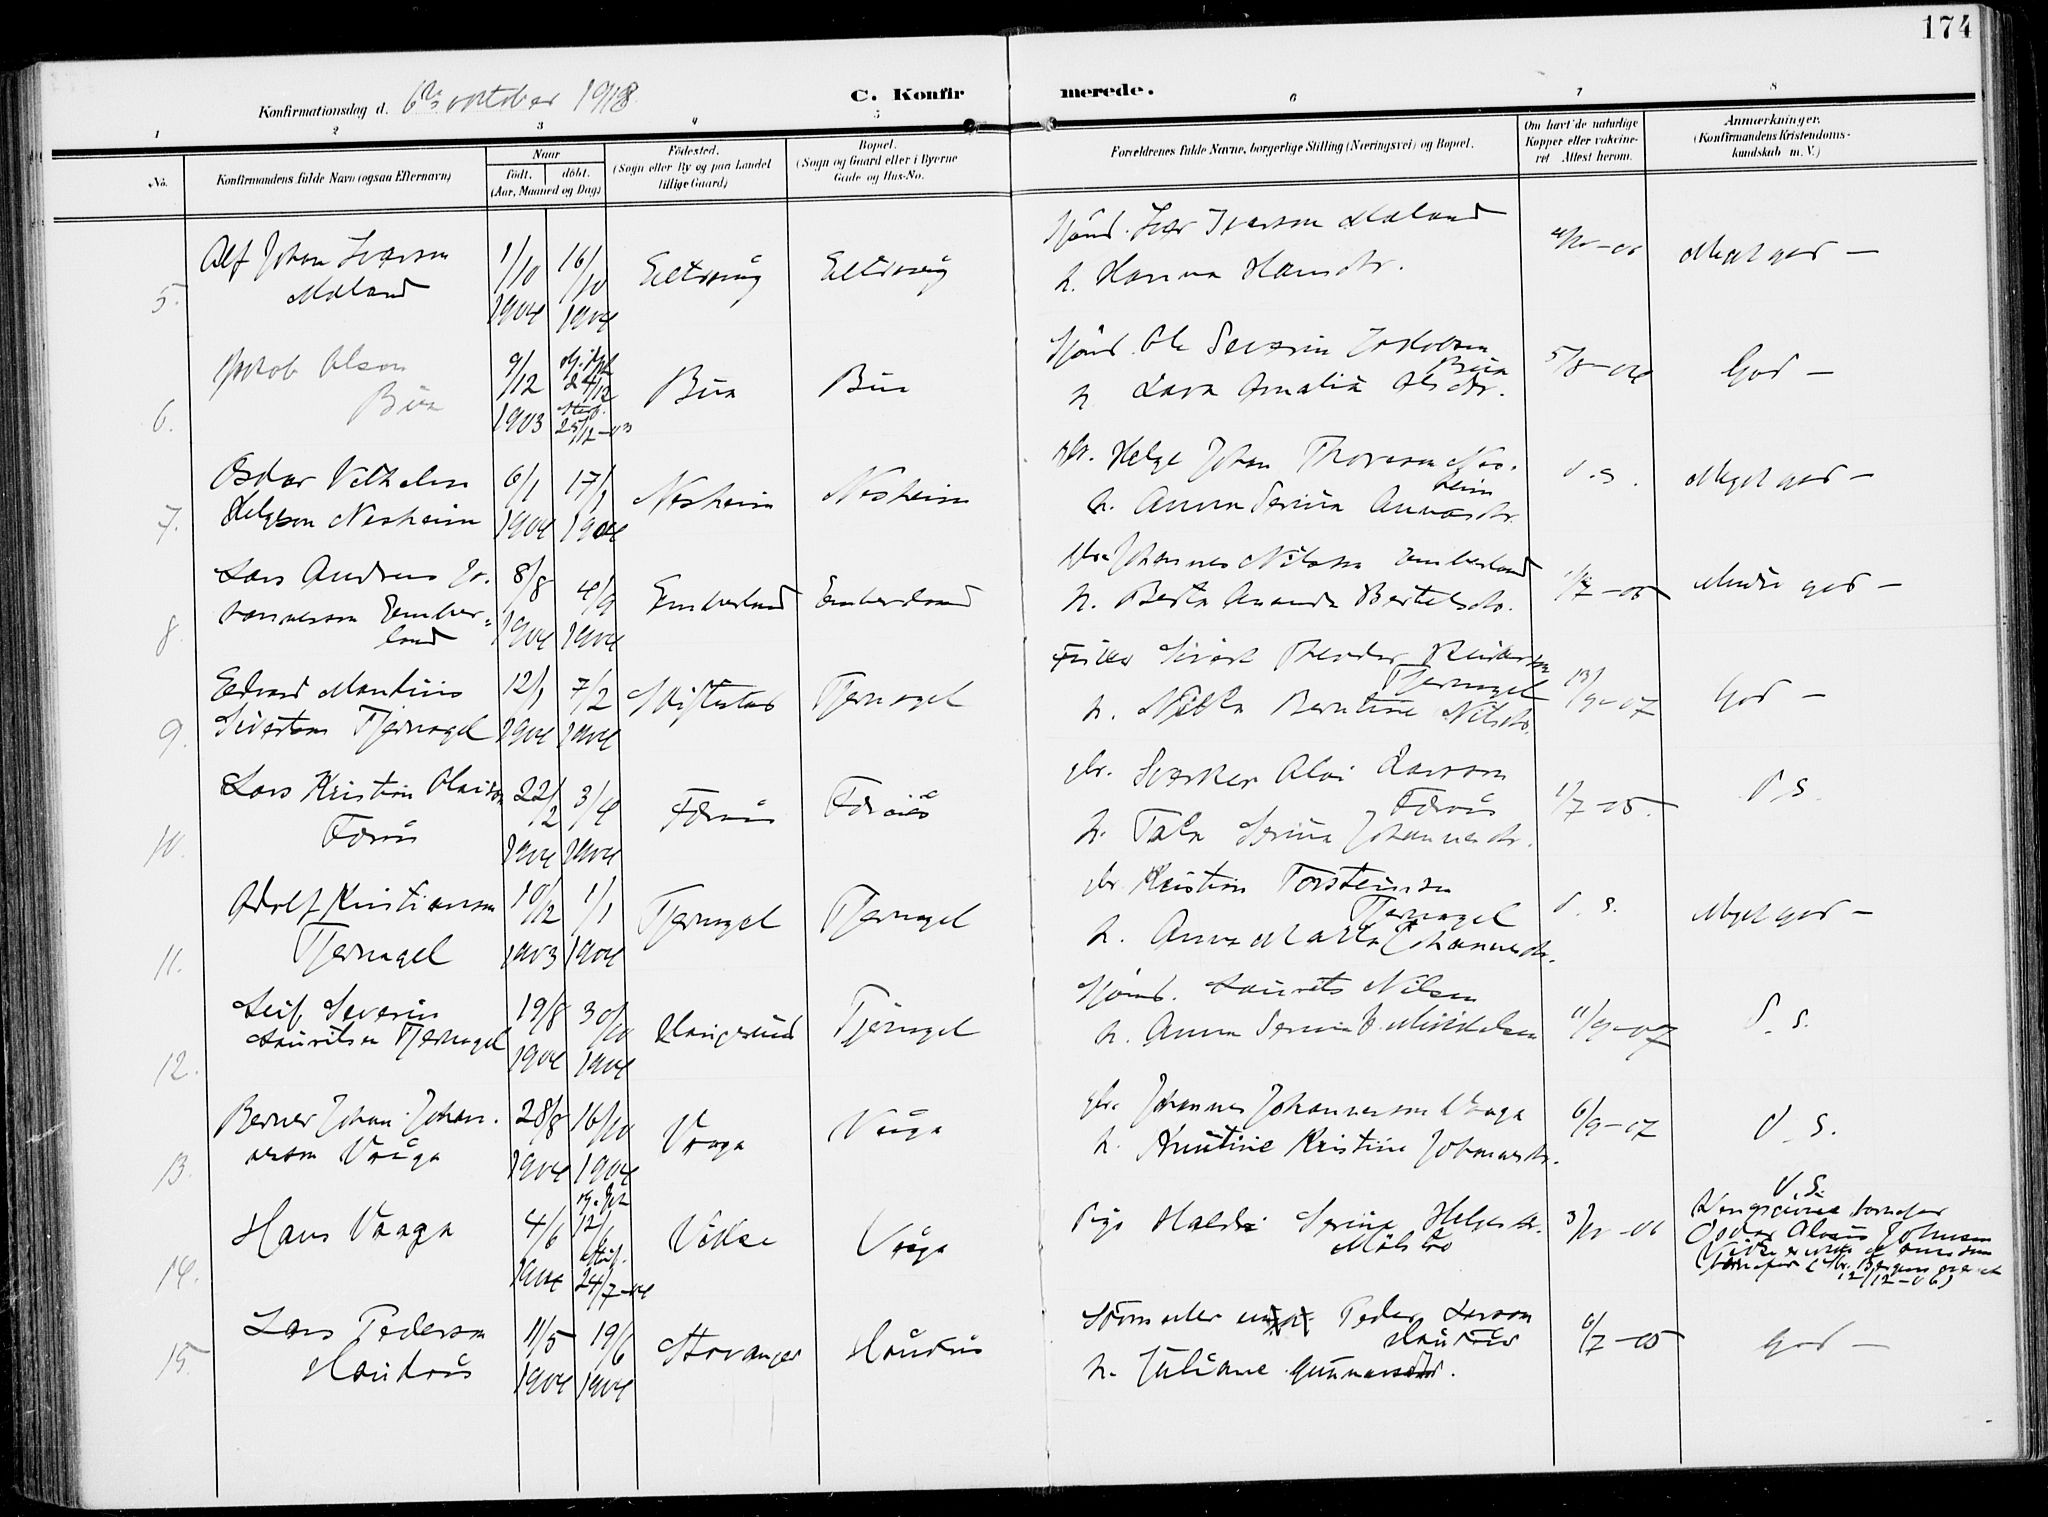 174
Konfirmationsdag d. 6te oktober 1918.
C. Konfirmerede.
1 2 3 4 5 6 7 8
No.
Konfirmandens fulde Navn (ogsaa Efternavn)
Naar
født. døbt.
(Aar, Maaned og Dag)
Fødested.
(Sogn eller By og paa Landet
tillige Gaard)
Bopæl.
(Sogn og Gaard eller i Byerne
Gade og Hus-No.
Forældrenes fulde Navne, borgerlige Stilling (Næringsvei) og Bopæl.
Om havt de naturlige
Kopper eller vakcine-
ret Attest herom.
Anmærkninger.
(Konfirmandens Kristendoms-
kundskab m. V.)
5.
Alf Johan Iversen
Mæland
1/10 1904
16/10 1904
Eltravåg
Eltravåg
Sjømd. Iver Iversen Mæland
h. Hanna Hansdtr.
Meget god —
6.
Jakob Olsen
Bua
9/12 1903
24/12
25/12-03
Bua
Bua
Sjømd. Ole Severin Jakobsen
Bua
h. Lava Amalia Olsdtr.
5/8-04
God —
7.
Oskar Vilhelm
Helgesen Nesheim
6/1 1904
17/1 1904
Nesheim
Nesheim
gbr. Helge Johan Thoresen Nes-
heim
h. Anna Serina Annasdtr.
d. s.
Meget god —
8.
Lars Andreas Jo-
hannesen Ember-
land
8/8 1904
4/9 1904
Emberland
Emberland
gbr. Johannes Nilsen Emberland
h. Berta Amanda Bertelsdtr.
1/7-05
Mindre god —
9.
Edvard Mandius
Sivertsen Tjernagel
12/1 1904
7/2 1904
Tjernagel
Fisker Sivert Theodor Reinertsen
Tjernagel
h. Nilla Berntine Nilsdtr.
13/9-07
God —
10.
Lars Kristian Olaisen
Førøis
22/2 1904
3/4 1904
Førøis
Førøis
gbr. Sverker Olai Larsen
Førøis
h. Tala Serina Johannesdtr.
1/7-05.
d. s.
11.
Adolf Kristiansen
Tjernagel
10/12 1903
1/1 1904
Tjernagel
Tjernagel
gbr. Kristian Torsteinsen
Tjernagel
h. Anna Marta Johannesdtr.
d. s.
Meget god —
12.
Leif Severin
Lauritsen Tjernagel
19/8 1904
30/10 1904
Haugesund
Tjernagel
Sjømd. Laurits Nilsen
h. Anna Serina B. Mikkelsen
11/9-07
d. s.
13.
Berner Johan Johan-
nesen Våga
28/8 1904
16/10 1904
Vaaga
Våga
gbr. Johannes Johannesen Vaaga
h. Knutine Kristine Johannesdtr.
6/9-07
d. s.
14.
Hans Vaaga
4/6 1904
12/6
24/7-04
Vikse
Våga
Pige Serina Helgesdtr.
3/10-06
d. s.
12/12-06)
15.
Lars Pedersen
Haukås
11/5 1904
19/6 1904
Stavanger
Haukås
Peder Larsen
Haukås
h. Juliane Gunnarsdtr.
6/7-05
God —